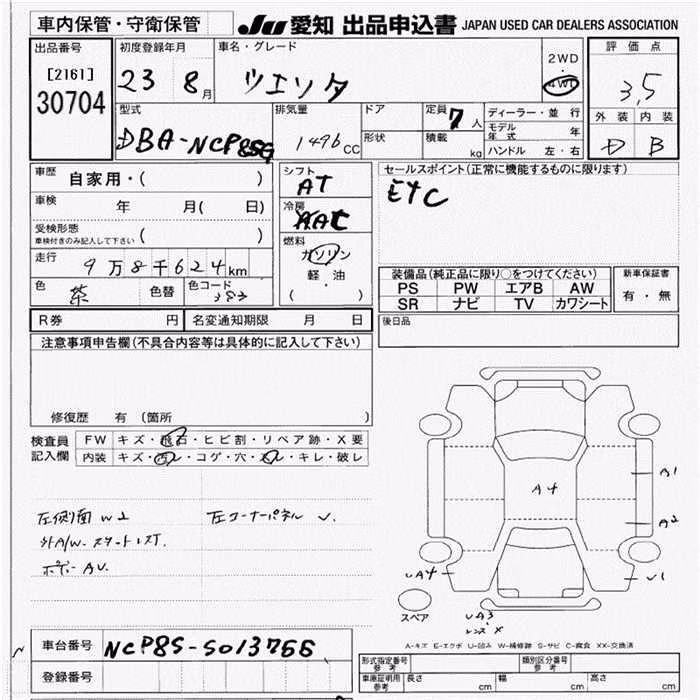 車内保管・守衛保管
JU 愛知 出品申込書 JAPAN USED CAR DEALERS ASSOCIATION
出品番号
[2161]
30704
初度登録年月
23 8月
車名・グレード
ツエソタ
2WD
・
4WD
評価点
3.5
外装 内装
D B
型式
DBA-NCP85G
排気量
1496 CC
ドア
形状
定員 7人
積載 kg
ディーラー・並行
モデル年式 年
ハンドル 左・右
車歴 自家用・( )
車検 年 月( 日)
受検形態
車検付きのみ記入して下さい ( )
走行 9万8千624km
色 茶 色替 色コード
シフト AT
冷房 AAC
燃料
ガソリン
軽・油
( )
セールスポイント(正常に機能するものに限ります)
ETC
装備品(純正品に限り○をつけてください)
PS PW エアB AW
SR ナビ TV カワシート
新車保証書
有・無
R券 円 名変通知期限 月 日
後日品
注意事項申告欄(不具合内容等は具体的に記入して下さい)
修復歴 有(箇所 )
検査員記入欄
FW キズ・飛石・ヒビ割・リペア跡・X要
内装 キズ・汚レ・コゲ・穴・スレ・キレ・破レ
左側面 W2 左コーナーパネル U.
外A/W.スタートレスT.
ボデー AU.
A4
A1
A2
UA4
U1
スペア
UA3
レンズ X
A-キズ E-エクボ U-凹み W-補修跡 S-サビ C-腐食 XX-交換済
車台番号 NCP85-5013766
登録番号
形式指定番号 参考 類別区分番号 参考
車庫証明用 参考 長さ cm 幅 cm 高さ cm